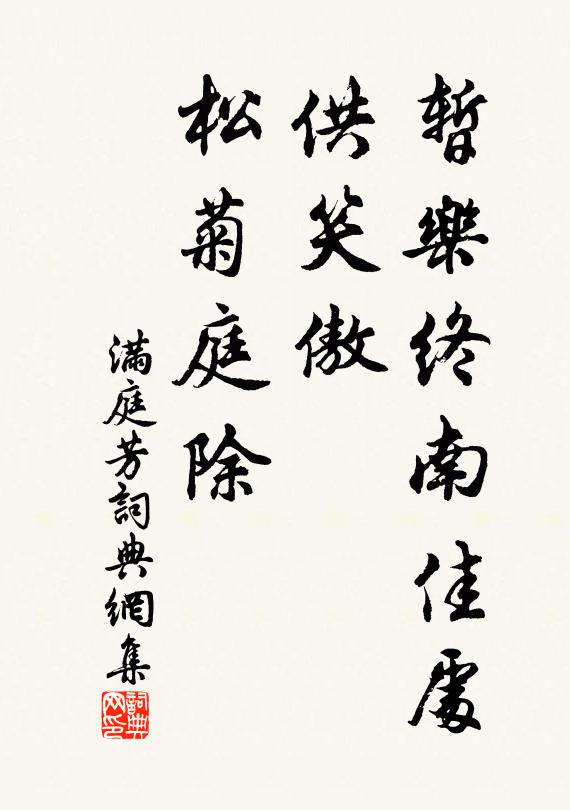 暫樂終南佳處
供笑傲
松菊庭除
滿庭芳詞典網集
詞典網印